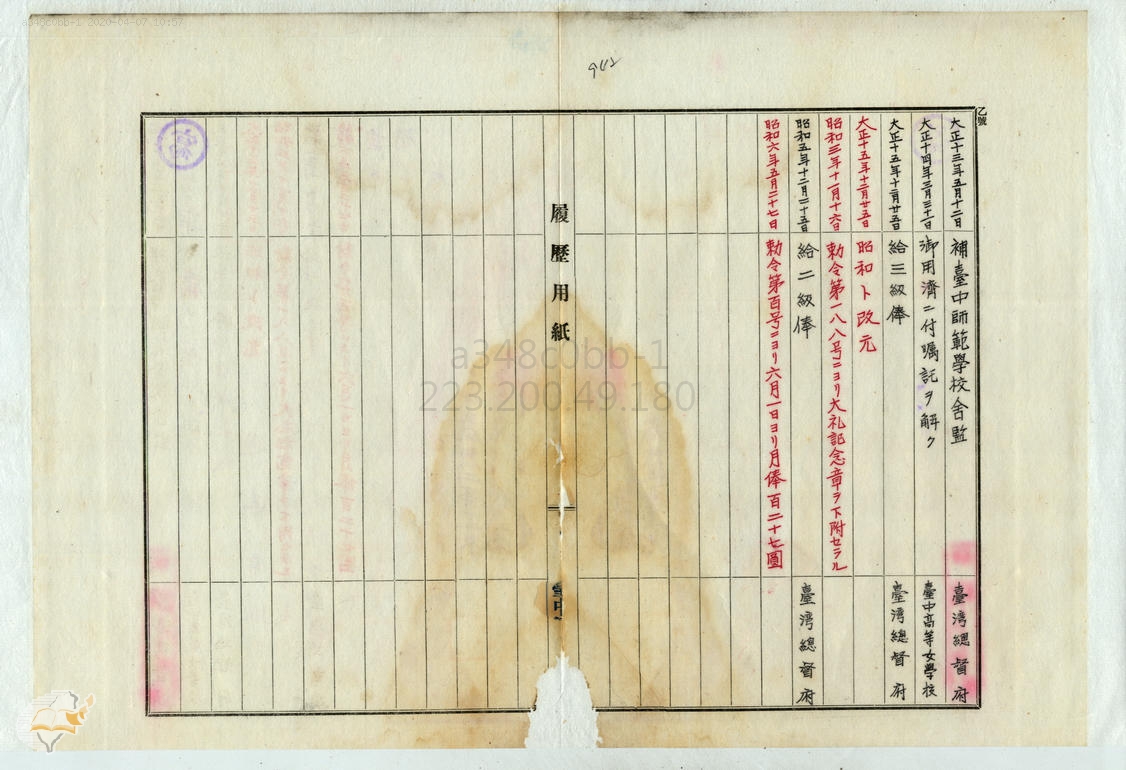 a348c0bb-1 2020-04-07 10:57
乙號
大正十三年五月十二日 補臺中師範學校舍監 臺湾總督府
大正十四年三月三十一日 御用濟ニ付嘱託ヲ解ク 臺中高等女學校
大正十五年十二月廿五日 給三級俸 臺湾總督府
大正十五年十二月廿五日 昭和ト改元
昭和三年十一月十六日 勅令第一八八号ニヨリ大礼記念章ヲ下附セラル
昭和五年十二月二十五日 給二級俸 臺湾總督府
昭和六年五月二十七日 勅令第百号ニヨリ六月一日ヨリ月俸百二十七圓
履歷用紙
臺中
a348c0bb-1
223.200.49.180